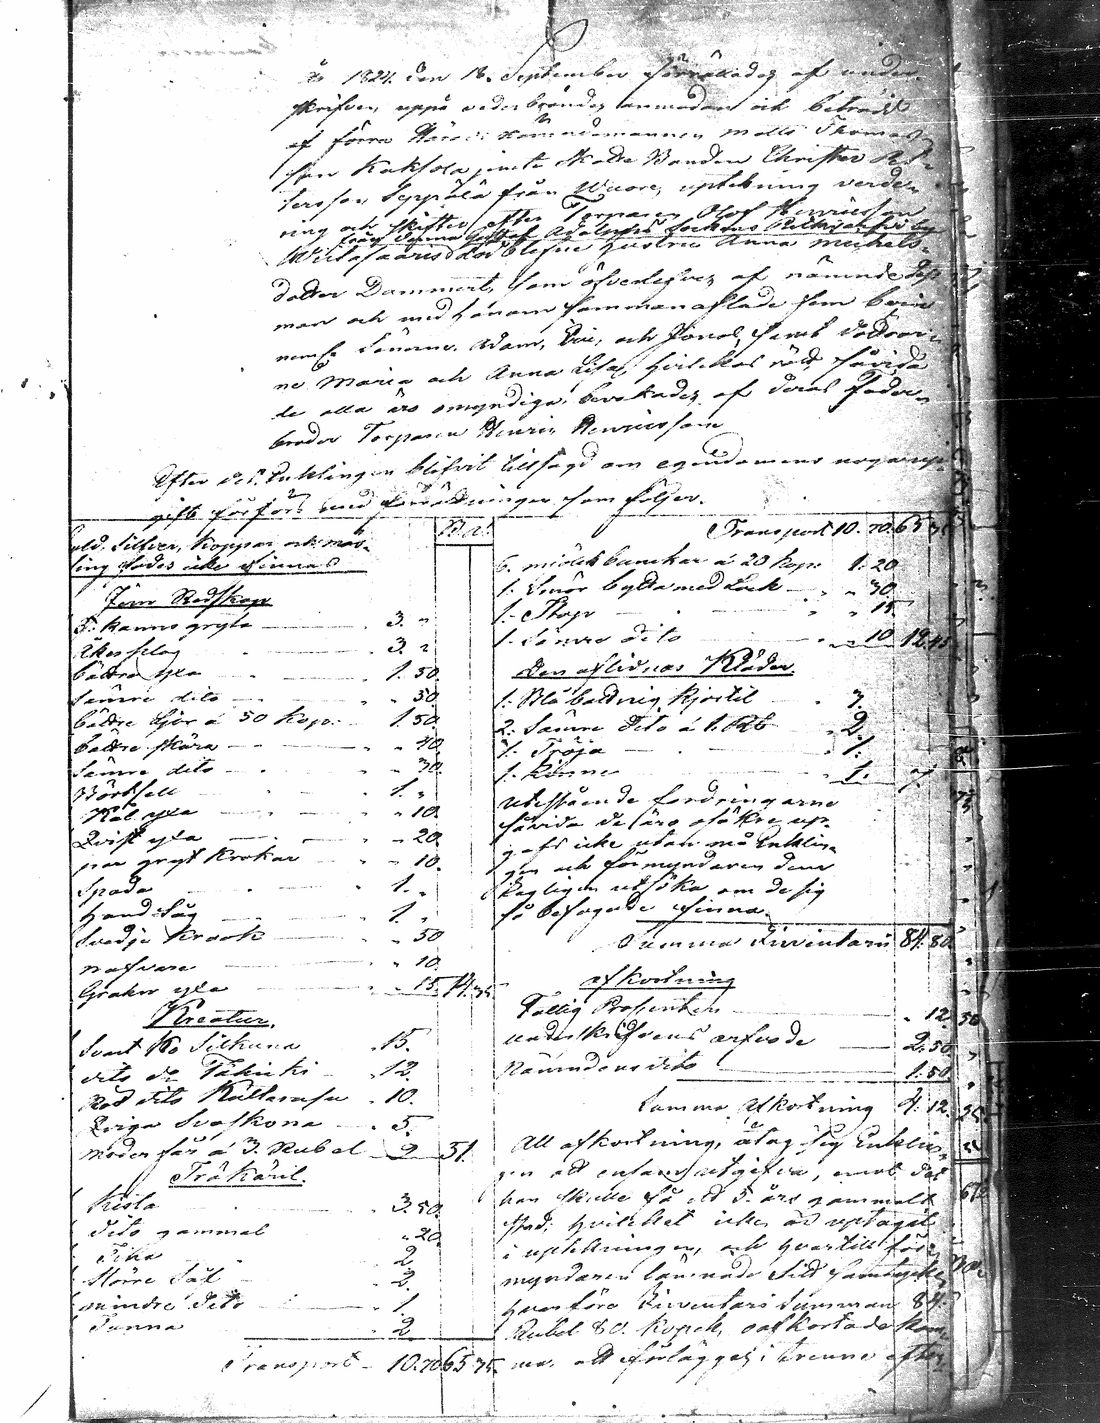 År 1824. den 18. September förrättades af under-
skrifven, uppå vederbörandes anmodan och biträde
af förra Härads nämndemannen Matts Thomas-
son Kaksola jemte skatte Bonden Christer Pet-
tersson Seppälä från Wuores, upteckning värde-
ring och skifte, efter Torparen Olof Henricsson
från denna Gustaf Adolphs Sockens
Wirtasaaris död blefne hustru Anna Michels-
dotter Dammert, som öfverlefves af nämnde dess
man och med honom sammanaflade fem barn
nemln Sönerne Adam, Eric, och Jonas, samt döttrar-
ne Maria och Anna Lisa, hvilkas rätt, såvida
de alla äro omyndiga, bevakades af deras Fader-
broder Torparen Henric Henricsson
Efter det Enklingen blifvit tillsagd om egendomens noga upp-
gift förförs med förrättningen som följer.
Guld, Silfver, Koppar och mäs-
sing sades icke finnas
Jern Redskap
5. kanns gryta 3. "
Åkerplog 3. "
bättre yxa 1. 50.
Sämre dito 50
bättre Liar á 50 Kop. 1. 50.
bättre skära 40
Sämre dito 30.
1. "
Kål yxa 10.
Qvist yxa 20.
par gryt Krokar 10.
Spada 1. "
Hand Såg 1. "
Svedje Krook 50
nafvare 10.
yxa 15. 14. 75
Kreatur.
Svart Ko Silkuna 15.
dito do 12.
Röd dito 10.
Qviga 5.
moder får á 3. Rubel 9 51.
Träkäril.
Kista 3. 50.
dito gammal 20.
Tina 2
Större Såt 2.
mindre dito 1.
Tunna 2
Transport 10. 70 65. 75.
Transport 10. 70. 65 75
6. mjölk bunckar á 20 Kop. 1. 20
1. Smör bytta med Lock 30.
1. Stop 15.
1. Sämre dito 10 12. 45
Den aflidnas Kläder.
1. Blå kjortil 3.
2. Sämre dito á 1. Rub 2.
1. Tröja 1.
1. 1. 7.
Utestående fordringarne
såvida de äro osäkre up-
gafs icke utan må Enklin-
gen och förmyndaren dem
lagligen utsöka om de sig
så befogade finna.
Summa Inventarii 84. 80.
afkortning
Fattig Procenten 12
underskrifvens arfvode 2. 50
Nämndens dito 1. 50
Summa afkortning 4. 12.
All afkortning, åtag sig Enklin-
gen att ensam utgifva, emot det
han skulle få ett 5. års gammalt
Sto, hvilket icke är uptagit
i upteckningen, och hvartill för-
myndaren lämnade sitt samtycke,
hvarföre Inventarii Summan 84.
Rubel 80. Kopek, oafkortade kom-
ma, att förläggas i trenne efter